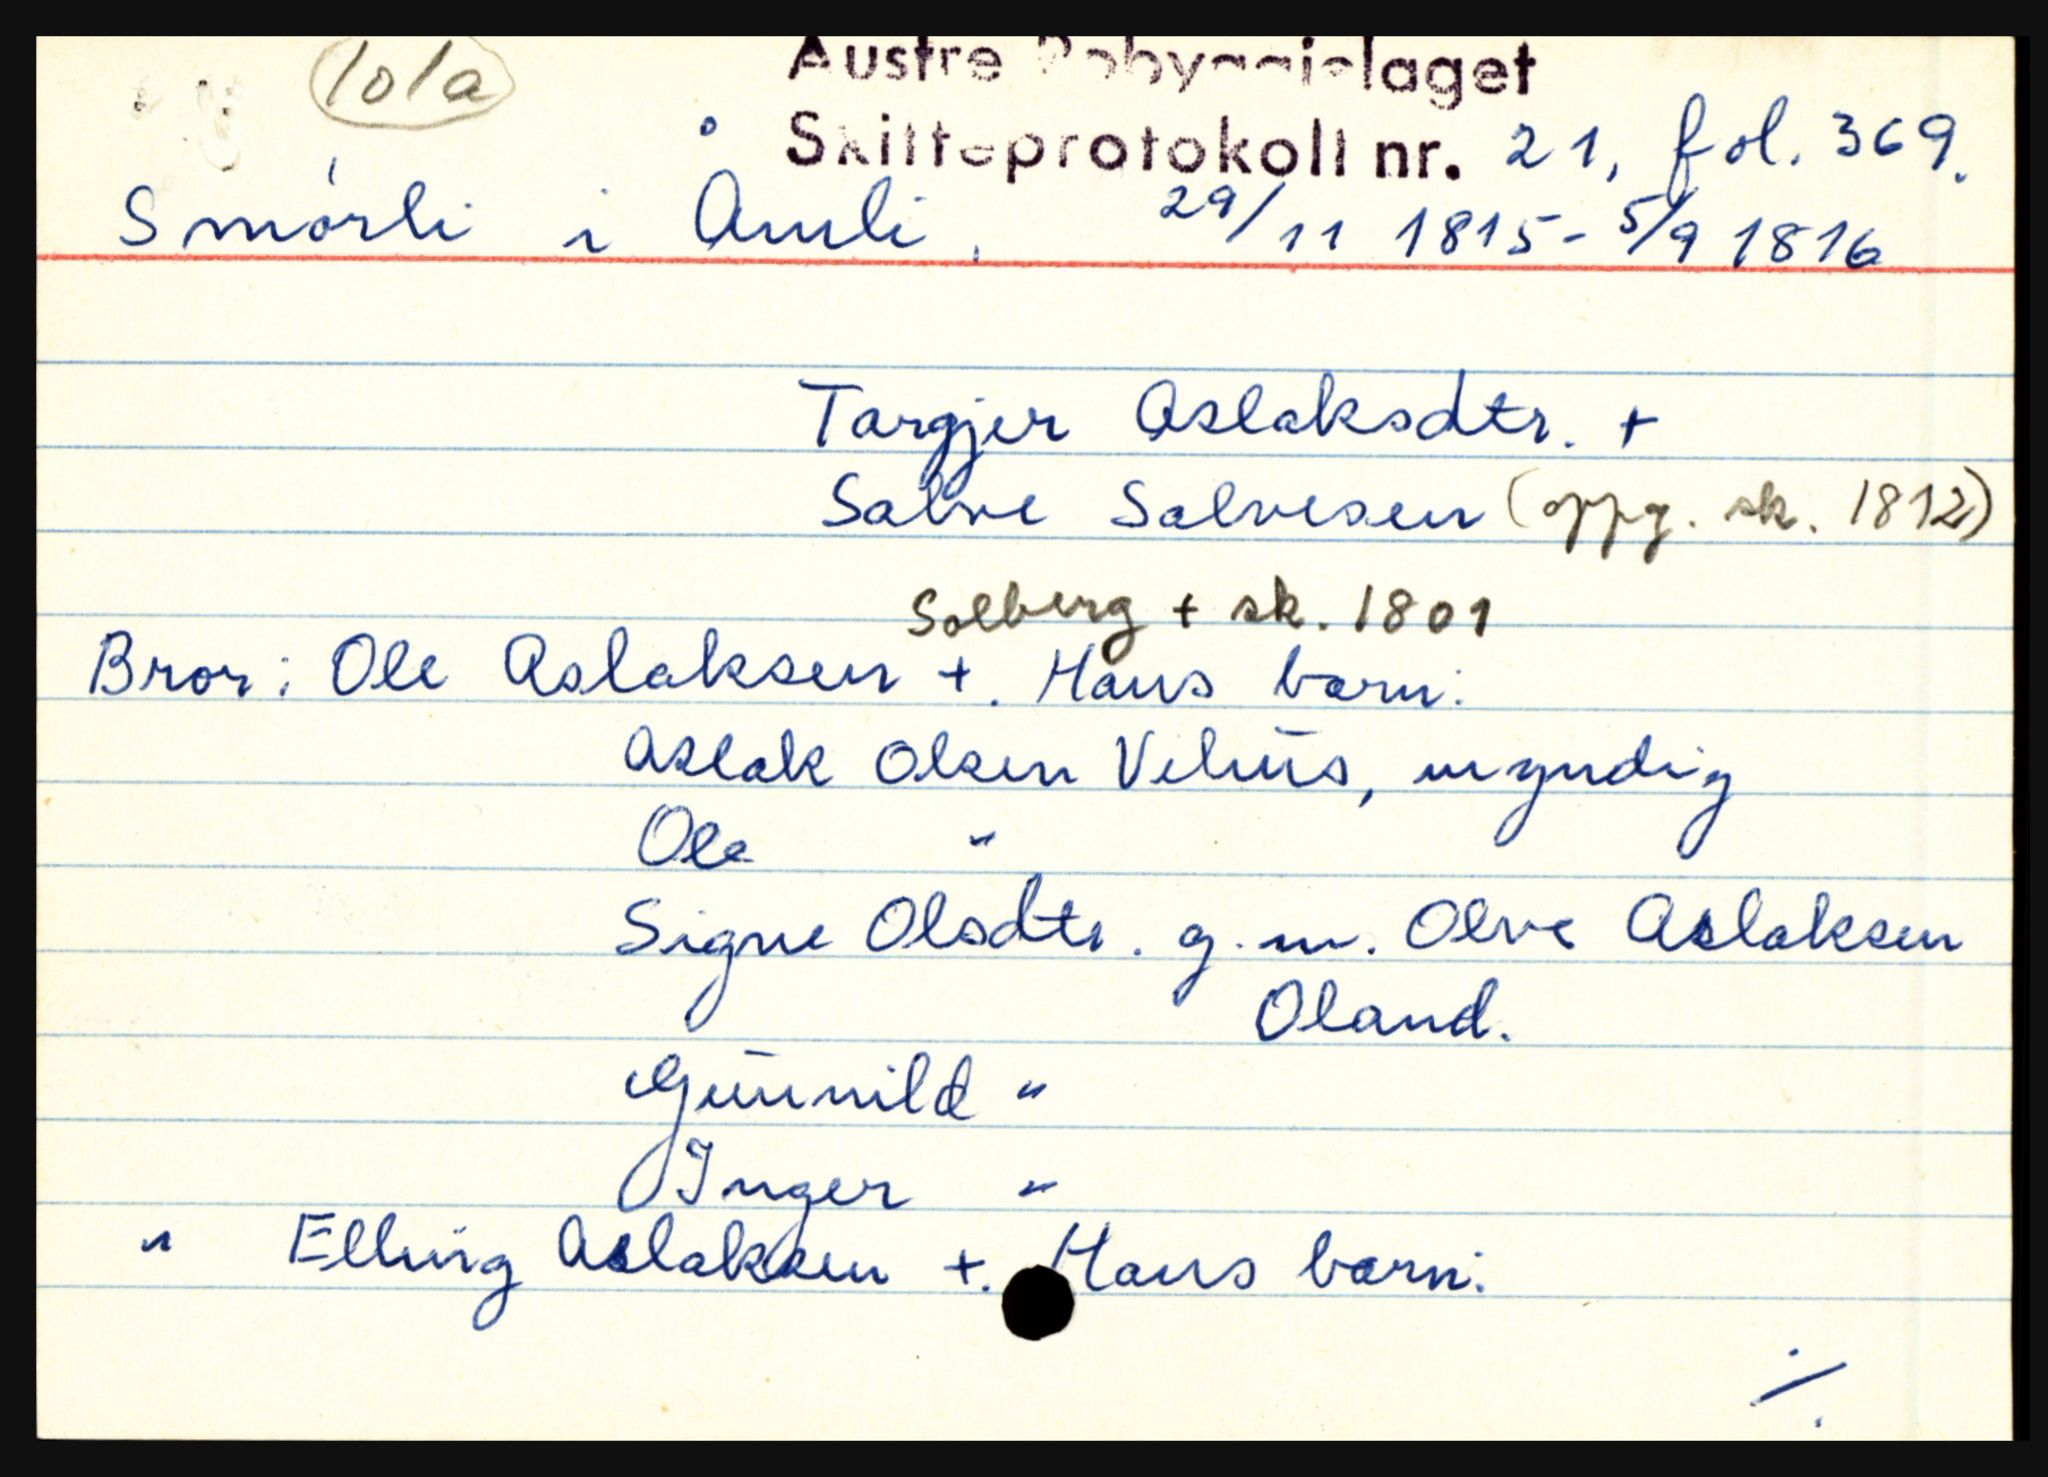 101a
Austre Robyggjelaget
Skifteprotokoll nr. 21, fol. 369.
Smørli i Åmli. 29/11 1815 - 5/9 1816
Targjer Aslaksdtr. +
Salve Salvesen (oppg. sk. 1812)
Solberg + sk. 1801
Bror: Ole Aslaksen +. Hans barn:
Aslak Olsen Vehus, myndig
Ole "
Signe Olsdtr. g.m. Olve Aslaksen
Oland.
Gunnild "
Inger "
" Elling Aslaksen +. Hans barn:
./.